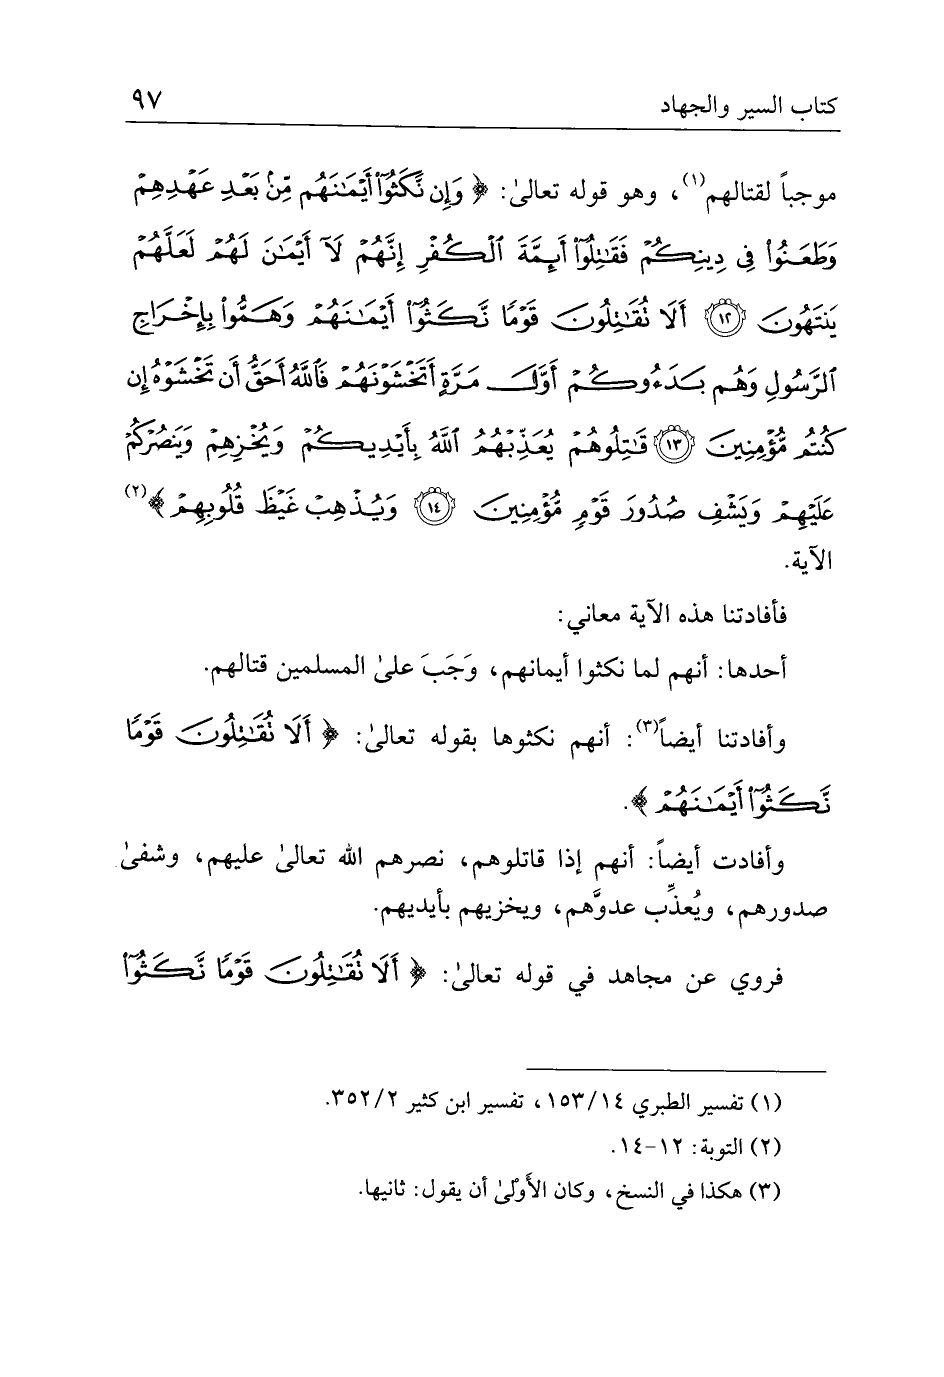 كتاب السير والجهاد ٩٧
موجباً لقتالهم(١)، وهو قوله تعالىٰ: ﴿ وَإِن نَّكَثُوٓا۟ أَيْمَـٰنَهُم مِّنۢ بَعْدِ عَهْدِهِمْ
وَطَعَنُوا۟ فِى دِينِكُمْ فَقَـٰتِلُوٓا۟ أَئِمَّةَ ٱلْكُفْرِ إِنَّهُمْ لَآ أَيْمَـٰنَ لَهُمْ لَعَلَّهُمْ
يَنتَهُونَ ١٢ أَلَا تُقَـٰتِلُونَ قَوْمًا نَّكَثُوٓا۟ أَيْمَـٰنَهُمْ وَهَمُّوا۟ بِإِخْرَاجِ
ٱلرَّسُولِ وَهُم بَدَءُوكُمْ أَوَّلَ مَرَّةٍ أَتَخْشَوْنَهُمْ فَٱللَّهُ أَحَقُّ أَن تَخْشَوْهُ إِن
كُنتُم مُّؤْمِنِينَ ١٣ قَـٰتِلُوهُمْ يُعَذِّبْهُمُ ٱللَّهُ بِأَيْدِيكُمْ وَيُخْزِهِمْ وَيَنصُرْكُمْ
عَلَيْهِمْ وَيَشْفِ صُدُورَ قَوْمٍ مُّؤْمِنِينَ ١٤ وَيُذْهِبْ غَيْظَ قُلُوبِهِمْ ﴾(٢)
الآية.
فأفادتنا هذه الآية معاني:
أحدها: أنهم لما نكثوا أيمانهم، وَجَبَ علىٰ المسلمين قتالهم.
وأفادتنا أيضاً(٣): أنهم نكثوها بقوله تعالىٰ: ﴿ أَلَا تُقَـٰتِلُونَ قَوْمًا
نَّكَثُوٓا۟ أَيْمَـٰنَهُمْ ﴾.
وأفادت أيضاً: أنهم إذا قاتلوهم، نصرهم الله تعالىٰ عليهم، وشفىٰ
صدورهم، ويُعذِّب عدوَّهم، ويخزيهم بأيديهم.
فروي عن مجاهد في قوله تعالىٰ: ﴿ أَلَا تُقَـٰتِلُونَ قَوْمًا نَّكَثُوٓا۟
(١) تفسير الطبري ١٥٣/١٤، تفسير ابن كثير ٣٥٢/٢.
(٢) التوبة: ١٢-١٤.
(٣) هكذا في النسخ، وكان الأَوْلىٰ أن يقول: ثانيها.